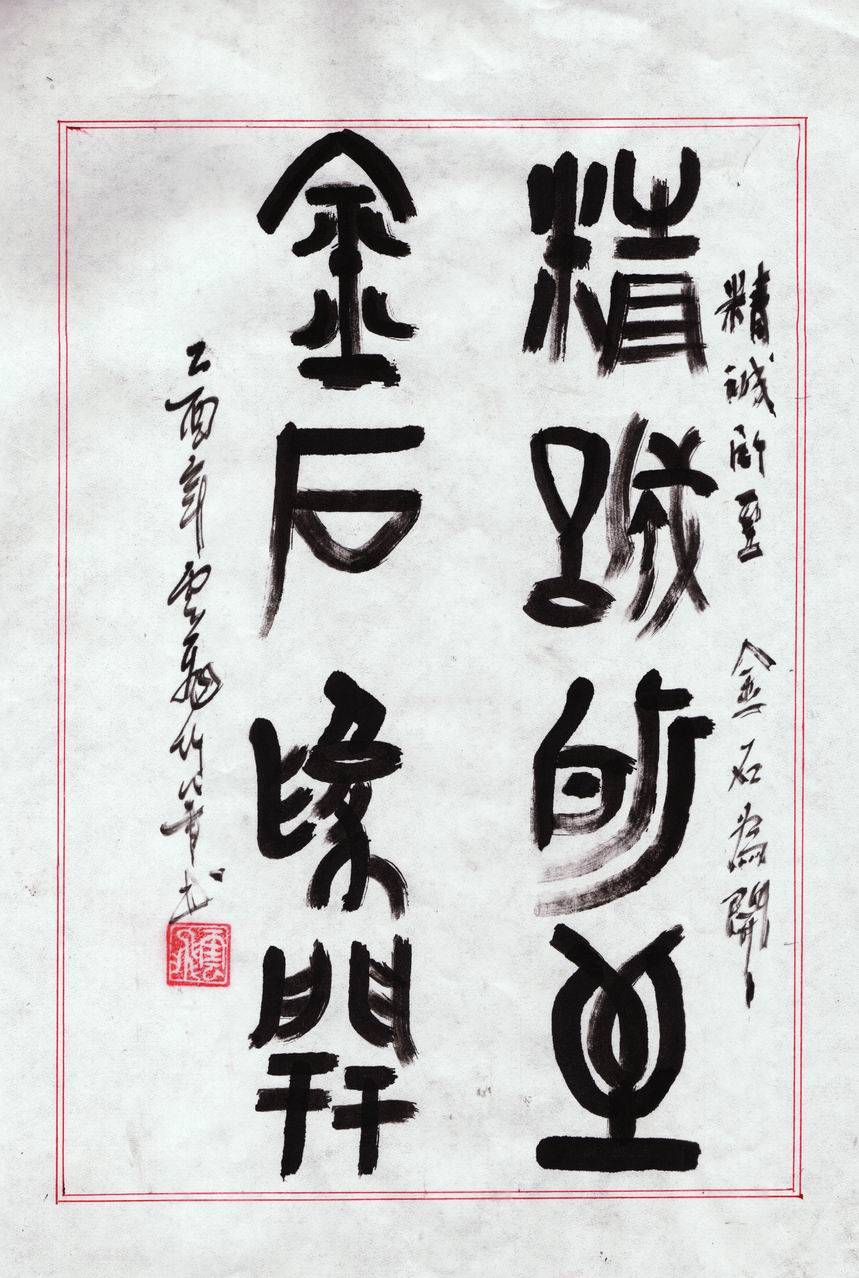 精誠所至 金石為開
精誠所至
金石為開
乙酉年雲竹筆书